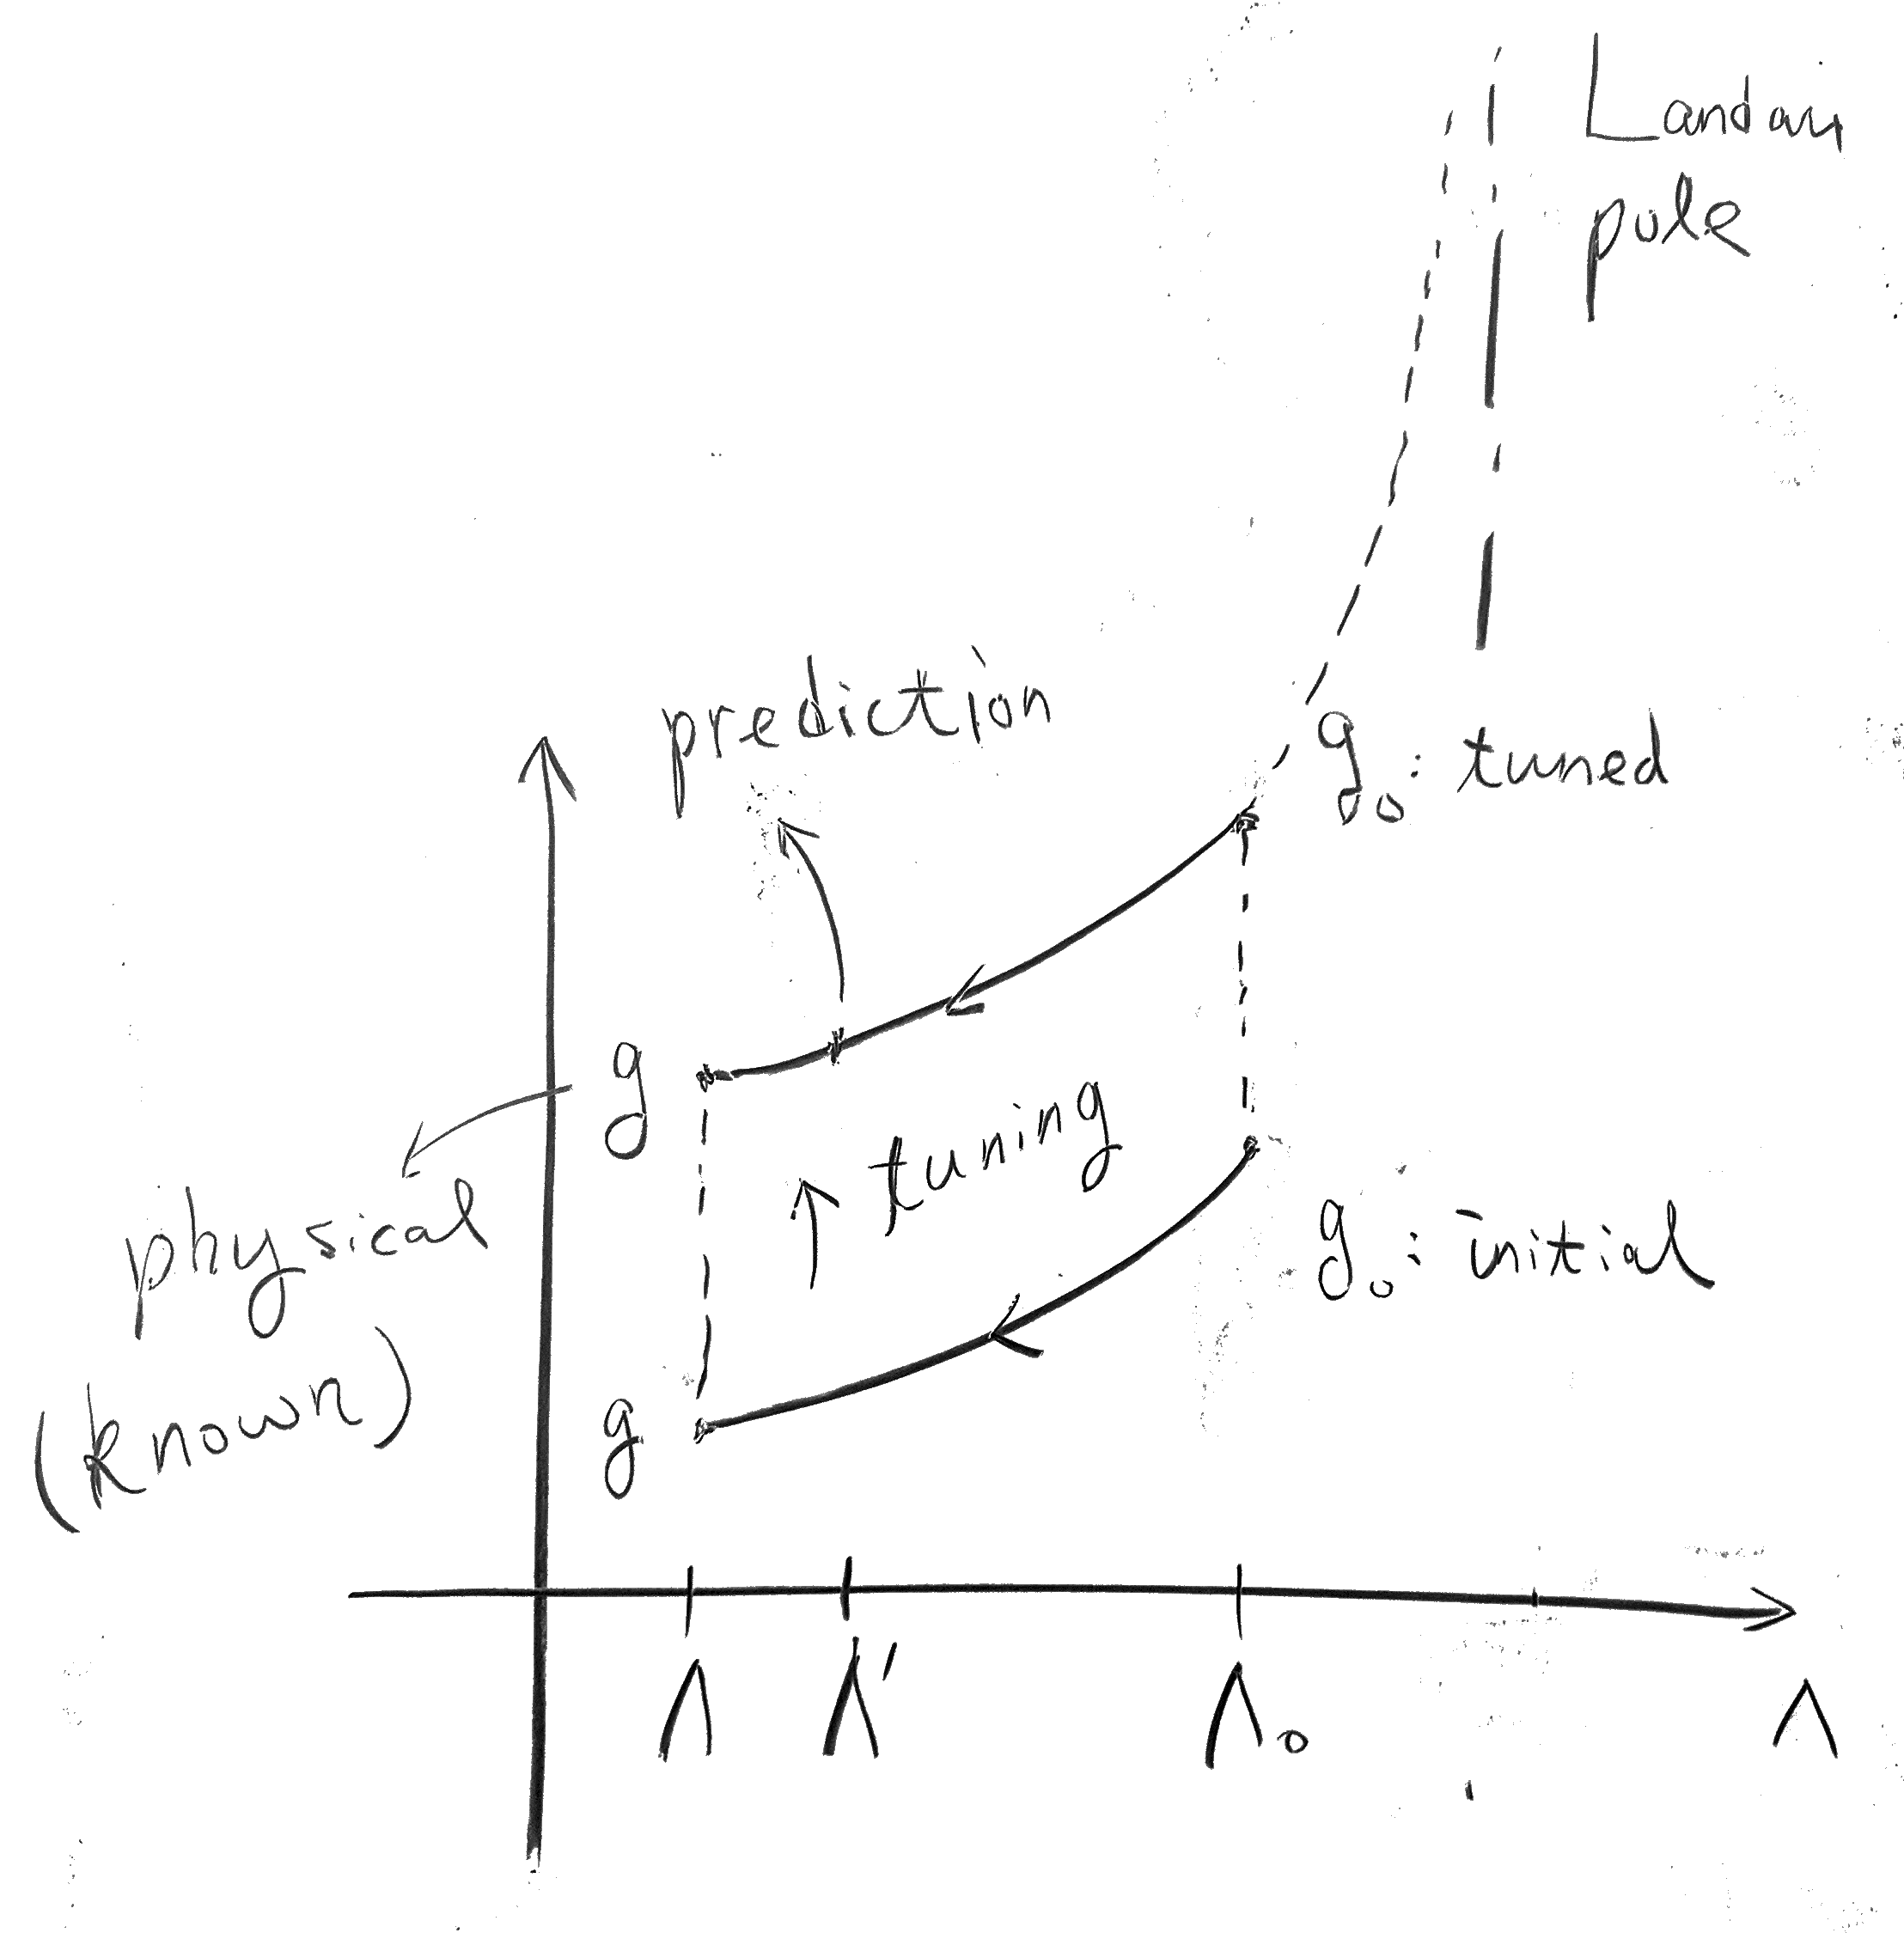 Landau
pole
prediction
g₀ : tuned
g
tuning
physical
(known)
g₀ : initial
g
Λ
Λ'
Λ₀
Λ